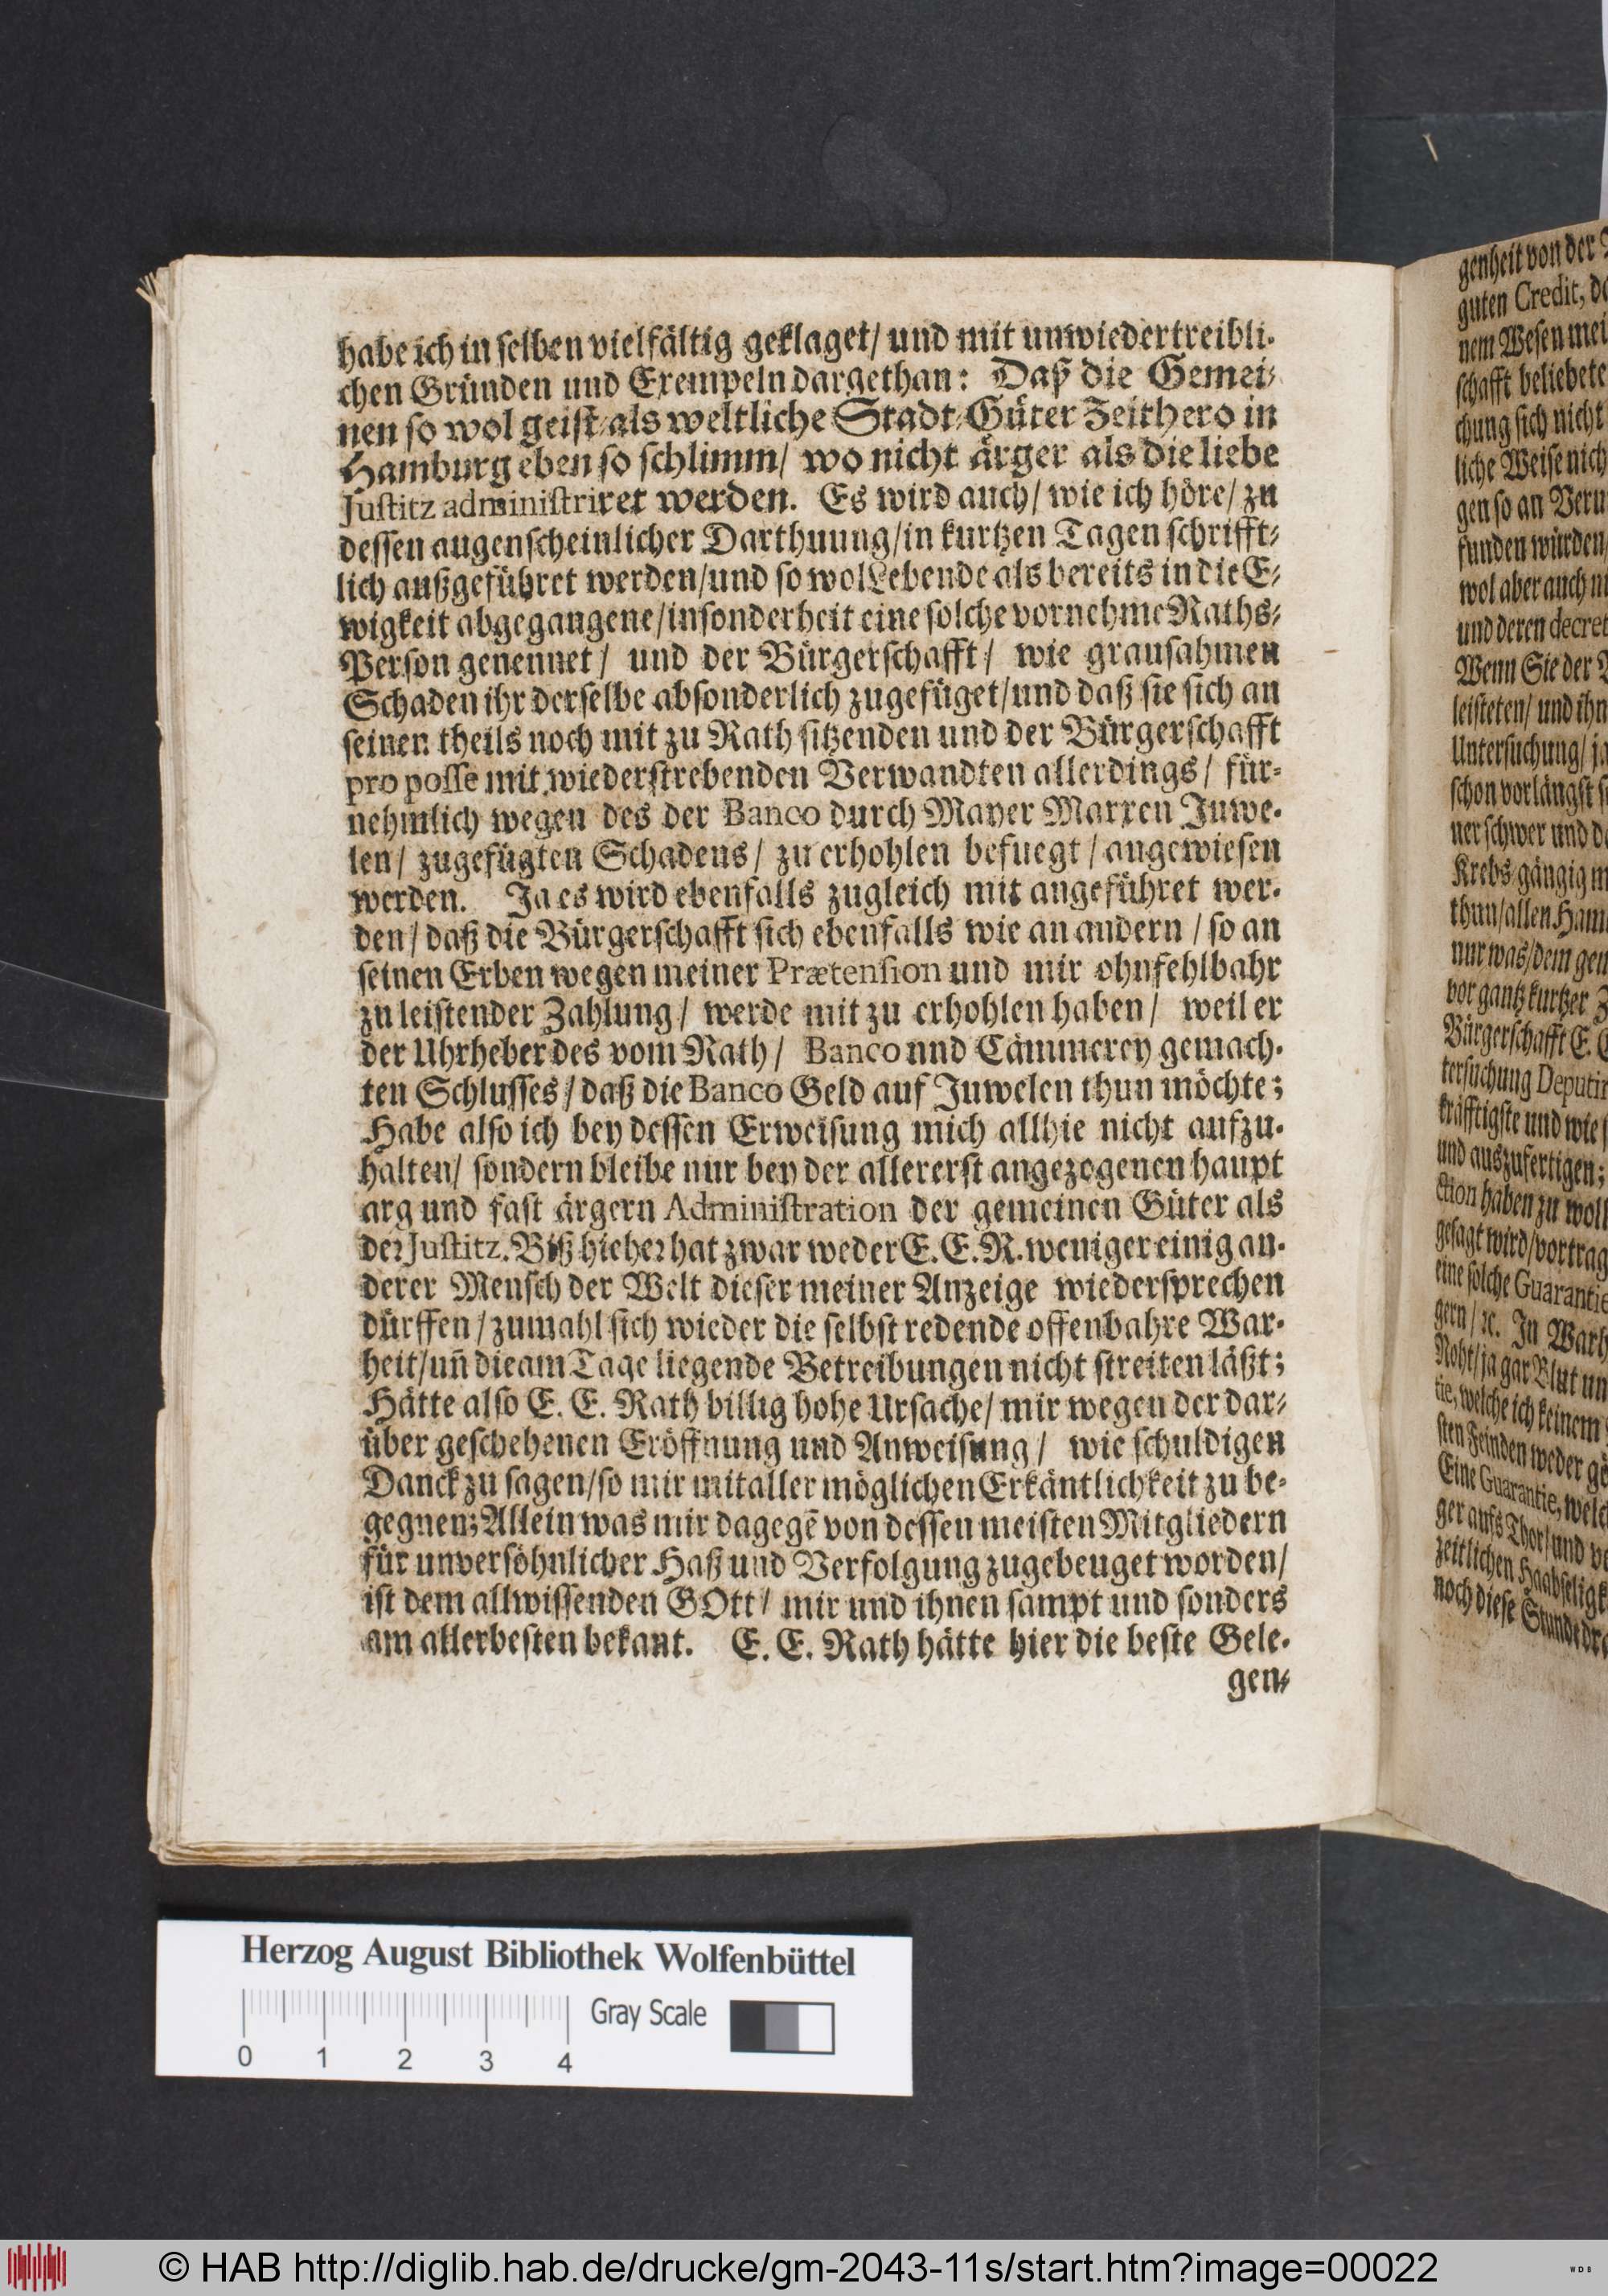 habe ich in selben vielfältig geklaget/ und mit unwiedertreibli-
chen Gründen und Exempeln dargethan: Daß die Gemei-
nen so wol geist-als weltliche Stadt-Güter Zeithero in
Hamburg eben so schlimm/ wo nicht ärger als die liebe
Justitz administriret werden. Es wird auch/ wie ich höre/ zu
dessen augenscheinlicher Darthuung/in kurtzen Tagen schrifft-
lich außgeführet werden/und so wol Lebende als bereits in die E-
wigkeit abgegangene/insonderheit eine solche vornehme Raths-
Person genennet/ und der Bürgerschafft/ wie grausahmen
Schaden ihr derselbe absonderlich zugefüget/und daß sie sich an
seinen theils noch mit zu Rath sitzenden und der Bürgerschafft
pro posse mit wiederstrebenden Verwandten allerdings/ für-
nehmlich wegen des der Banco durch Mayer Marxen Juwe-
len/ zugefügten Schadens/ zu erhohlen befuegt/angewiesen
werden. Ja es wird ebenfalls zugleich mit angeführet wer-
den/ daß die Bürgerschafft sich ebenfalls wie an andern/so an
seinen Erben wegen meiner Prætension und mir ohnfehlbahr
zu leistender Zahlung/ werde mit zu erhohlen haben/ weil er
der Uhrheber des vom Rath/ Banco und Cämmerey gemach-
ten Schlusses/ daß die Banco Geld auf Juwelen thun möchte;
Habe also ich bey dessen Erweisung mich allhie nicht aufzu-
halten/ sondern bleibe nur bey der allererst angezogenen haupt
arg und fast ärgern Administration der gemeinen Güter als
der Justitz. Biß hieher hat zwar weder E. E. R. weniger einig an-
derer Mensch der Welt dieser meiner Anzeige wiedersprechen
dürffen/zumahl sich wieder die selbst redende offenbahre War-
heit/un̄ die am Tage liegende Betreibungen nicht streiten läßt;
Hätte also E. E. Rath billig hohe Ursache/ mir wegen der dar-
über geschehenen Eröffnung und Anweisung/ wie schuldigen
Danck zu sagen/so mir mit aller möglichen Erkäntlichkeit zu be-
gegnen; Allein was mir dagegē von dessen meisten Mitgliedern
für unversöhnlicher Haß und Verfolgung zugebeuget worden/
ist dem allwissenden GOtt/ mir und ihnen sampt und sonders
am allerbesten bekant. E. E. Rath hätte hier die beste Gele-
gen-
genheit von der
guten Credit,
nem Wesen
schafft beliebete
chung sich nicht
liche Weise
gen so an
funden würden/
wol aber auch
und deren
Wenn Sie der
leisteten/ und
Untersuchung/
schon vorlängst
ner schwer und
Krebs gängig
thun/allen
nur was/dem
vor gantz kurtzer
Bürgerschafft E.
tersuchung
kräfftigste und wie
und auszufertigen;
ction haben zu
gesagt wird/vortrag
eine solche Guarantie
gern/ ꝛc. In
Noht/ja gar Blut
tie, welche ich keinem
sten Feinden weder
Eine Guarantie,
ger aufs Thor/und
zeitlichen
noch diese
Herzog August Bibliothek Wolfenbüttel
Gray Scale
0 1 2 3 4
© HAB http://diglib.hab.de/drucke/gm-2043-11s/start.htm?image=00022
WDB